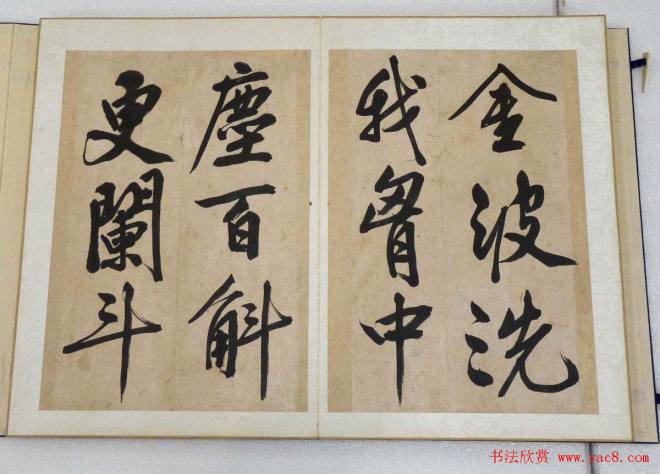 金波洗
我胷中
塵百斛
更闌斗
书法欣赏 www.yac8.com